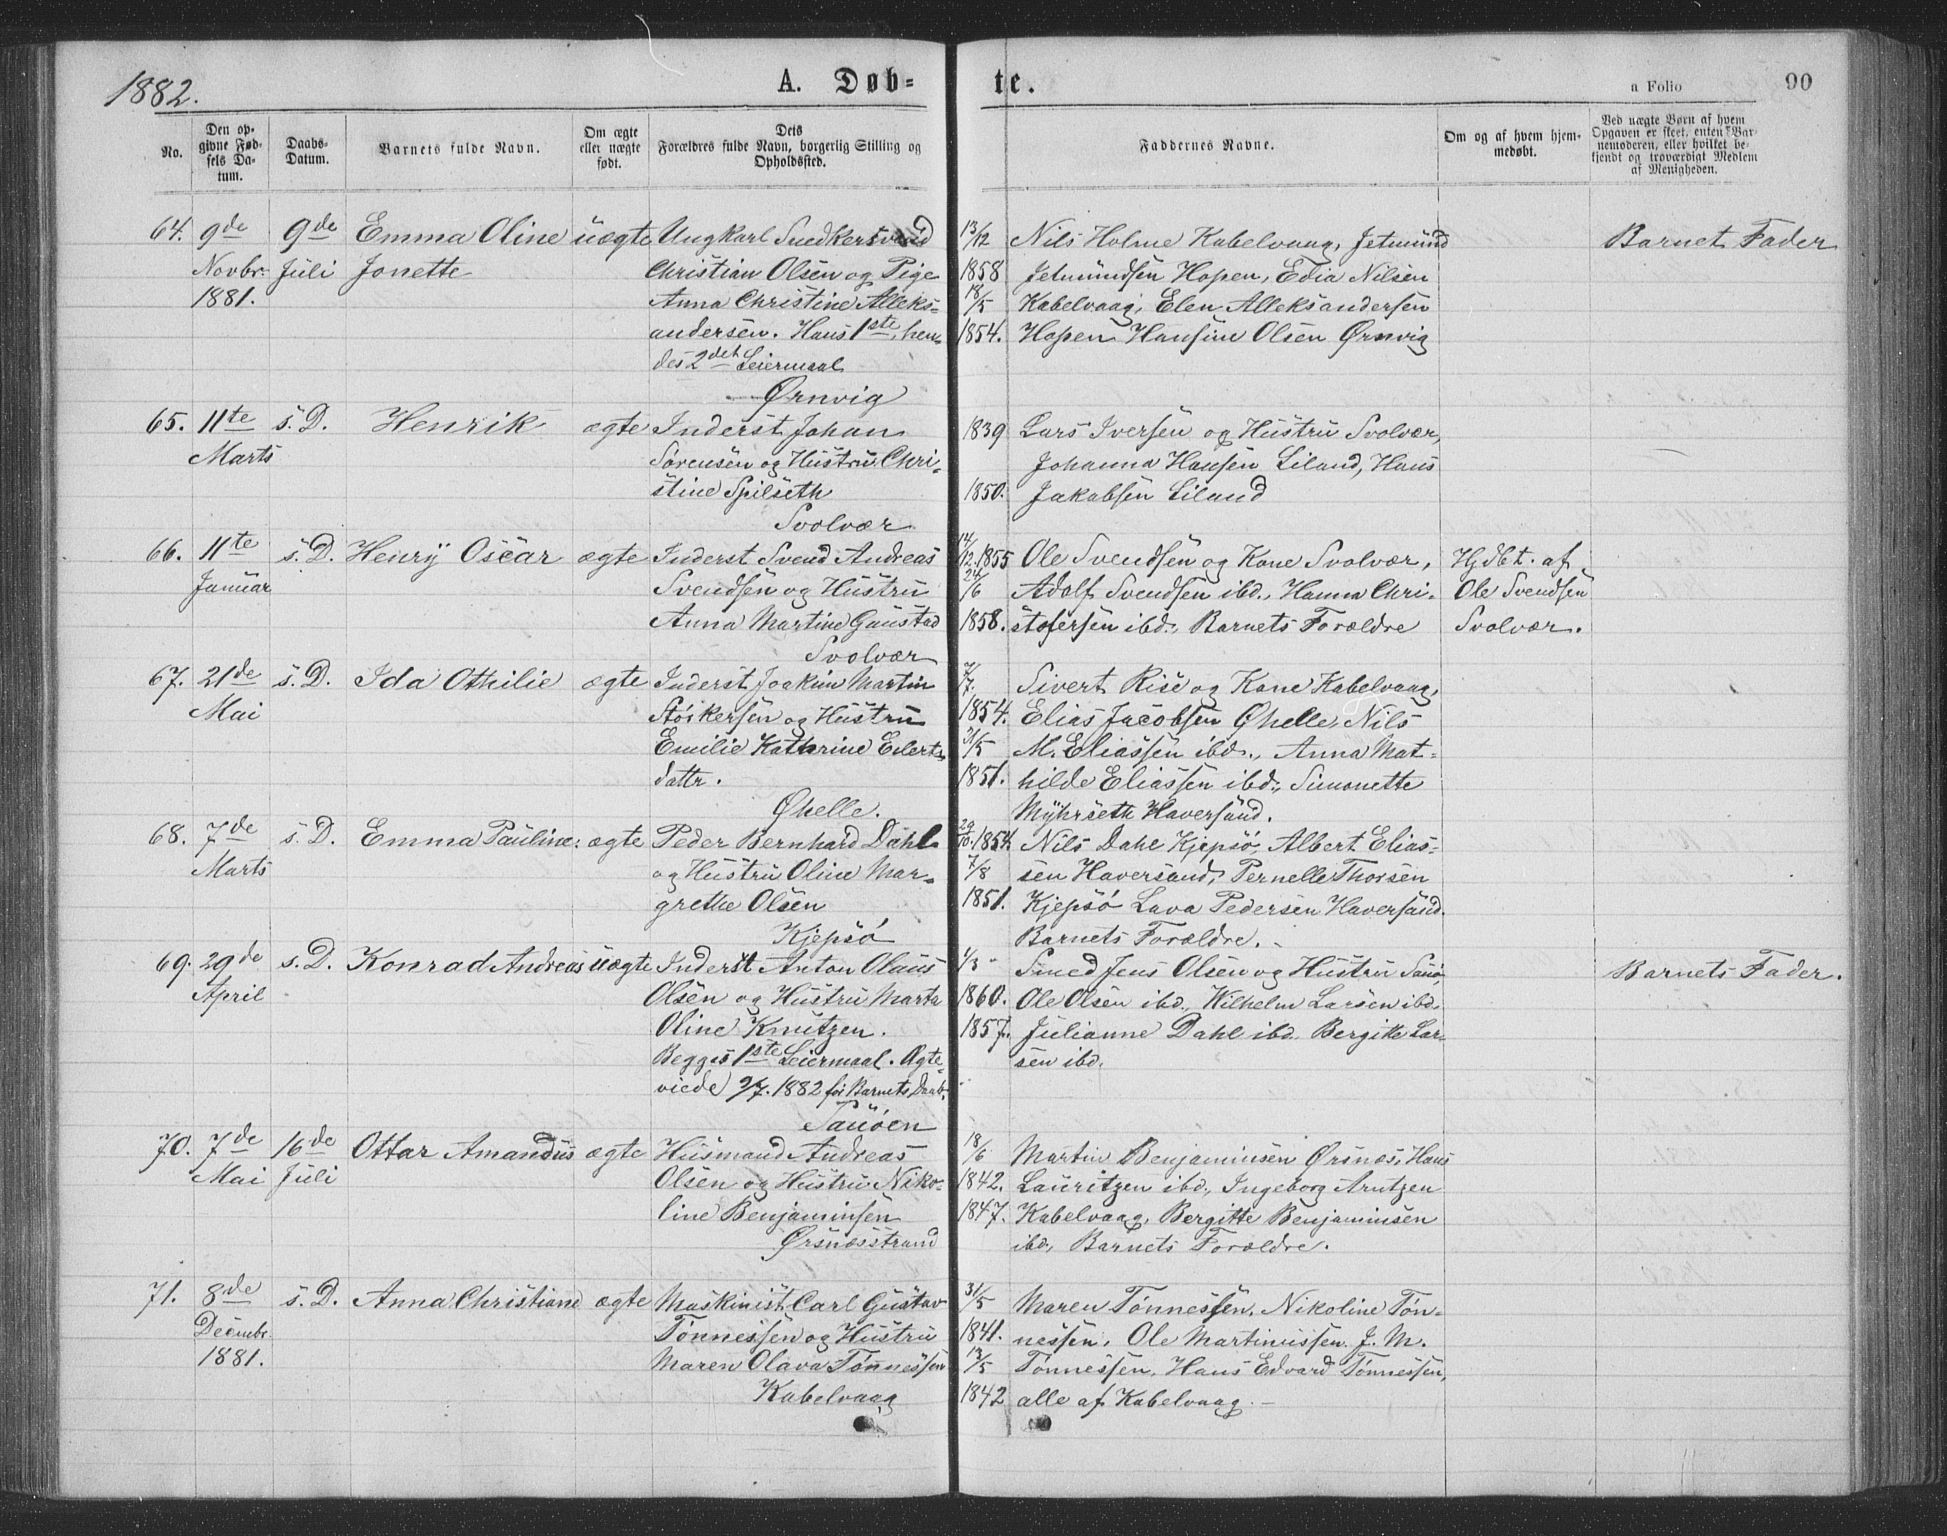 1882.
A. Døb-
te.
a Folio 90
No.
Den op-
givne Fød-
sels Da-
tum.
Daabs-
Datum.
Barnets fulde Navn.
Om ægte
eller uægte
født.
Dets
Forældres fulde Navn, borgerlig Stilling og
Opholdssted.
Faddernes Navne.
Om og af hvem hjem-
medøbt.
Ved uægte Børn af hvem
Opgaven er skeet, enten Bar-
nemoderen, eller hvilket be-
kjendt og troværdigt Medlem
af Menigheden.
64. 9de
Novbr.
1881.
9de
Juli
Emma Oline
Jonette
üægte
Ungkarl Snedkersvend
Christian Olsen og Pige
Anna Christine Alleks-
andersen. Hans 1ste, hen-
des 2det Leiermaal
Ørnvig
13/12
1858
18/5
1854.
Nils Holme Kabelvaag, Jetmünd
Jetmündsen Hopen, Edia Nilsen
Kabelvaag, Elen Alleksandersen
Hopen Hansine Olsen Ørnvig
Barnet Fader
65. 11te
Marts
s. D.
Henrik
ægte
Inderst Johan
Sørensen og Hüstrü Chri-
stine Spilseth
Svolvær
1839
1850.
Lars Iversen og Hüstrü Svolvær,
Johanna Hansen Liland, Hans
Jakobsen Liland
66. 11te
Januar
s. D.
Henrÿ Oscar
ægte
Inderst Svend Andreas
Svendsen og Hüstrü
Anna Martine Gaustad
Svolvær
14/12. 1855
24/6
1858.
Ole Svendsen og Kone Svolvær,
Adolf Svendsen ibd., Hanna Chri-
stofersen ibd., Barnets Forældre
Hjdbt. af
Ole Svendsen
Svolvær.
67. 21de
Mai
s. D.
Ida Othilie
ægte
Inderst Joakim Martin
Störkersen og Hüstrü
Emilie Kathrine Eilerts-
dattr.
Øhelle.
7/7.
1854.
31/5
1851.
Sivert Rise og Kone Kabelvaag,
Elias Jacobsen Øhelle, Nils
M. Eliassen ibd., Anna Mat-
hilde Eliassen ibd., Simonette
Mÿhrseth Haversünd.
68. 7de
Marts
s. D.
Emma Pauline.
ægte
Peder Bernhard Dahl
og Hüstrü Oline Mar-
grethe Olsen
Kjepsö
29/10. 1854.
7/8
1851.
Nils Dahl Kjepsö, Albert Elias-
sen Haversund, Pernelle Thorsen
Kjepsö Lava Pedersen Haversünd.
Barnets Forældre.
69. 29de
April
s. D.
Konrad Andreas
üægte
Inderst Anton Olaus
Olsen og Hüstrü Marta
Oline Knutzen.
Begges 1ste Leiermaal. Ægte-
viede 9/7. 1882 før Barnets Daab.
Sauöen
4/3
1860.
1857.
Smed Jens Olsen og Hüstrü Sauö,
Ole Olsen ibd., Wilhelm Larsen ibd.
Julianne Dahl ibd. Bergitte Lar-
sen ibd.
Barnets Fader.
70. 7de
Mai
16de
Juli
Ottar Amandüs
ægte
Hüsmand Andreas
Olsen og Hüstrü Niko-
line Benjaminsen
Ørsnæsstrand
18/6
1842.
1847.
Martin Benjaminsen Ørsnæs, Hans
Lauritzen ibd., Ingeborg Arntzen
Kabelvaag, Bergitte Benjaminsen
ibd, Barnets Forældre.
71. 8de
Decmbr.
1881.
s. D.
Anna Christiane
ægte
Maskinist Carl Gustav
Tönnessen og Hüstrü
Maren Olava Tönnessen
Kabelvaag
31/5
1841.
13/5
1842
Maren Tönnessen, Nikoline Tön-
nessen, Ole Martinussen J. M.
Tönnessen, Hans Edvard Tönnessen,
alle af Kabelvaag.